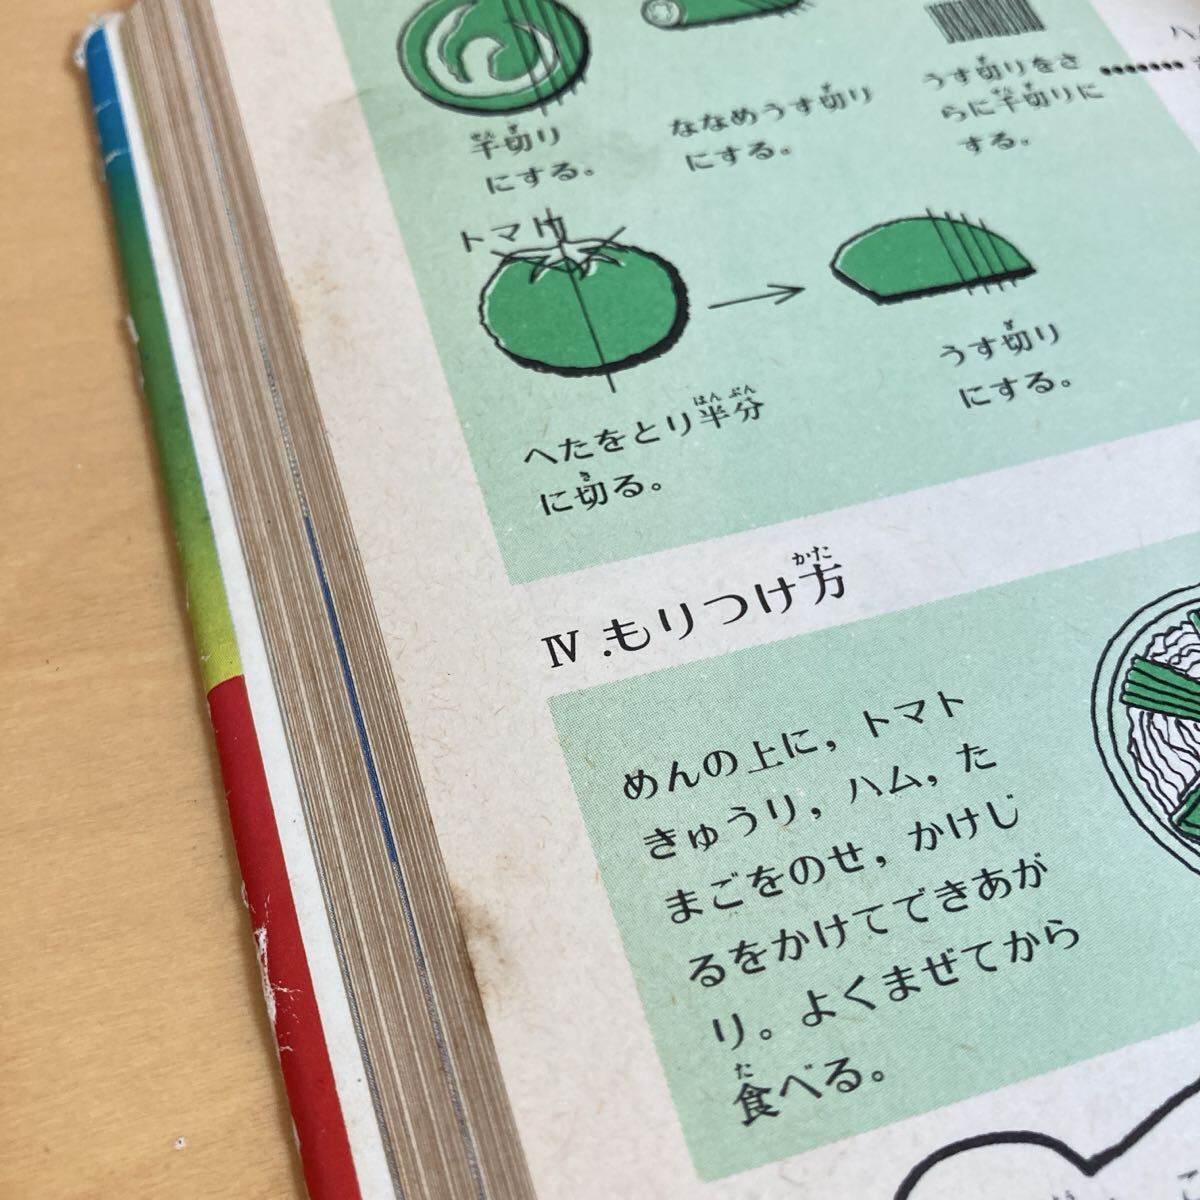 せん ぎ
千切り
にする。
ぎ
ななめうす切り
にする。
ぎ
うす切りをさ
せん ぎ
らに千切りに
する。
トマト
はん ぶん
へたをとり半分
き
に切る。
ぎ
うす切り
にする。
かた
Ⅳ.もりつけ方
めんの上に，トマト
きゅうり，ハム，た
まごをのせ，かけじ
るをかけてできあが
り。よくまぜてから
た
食べる。